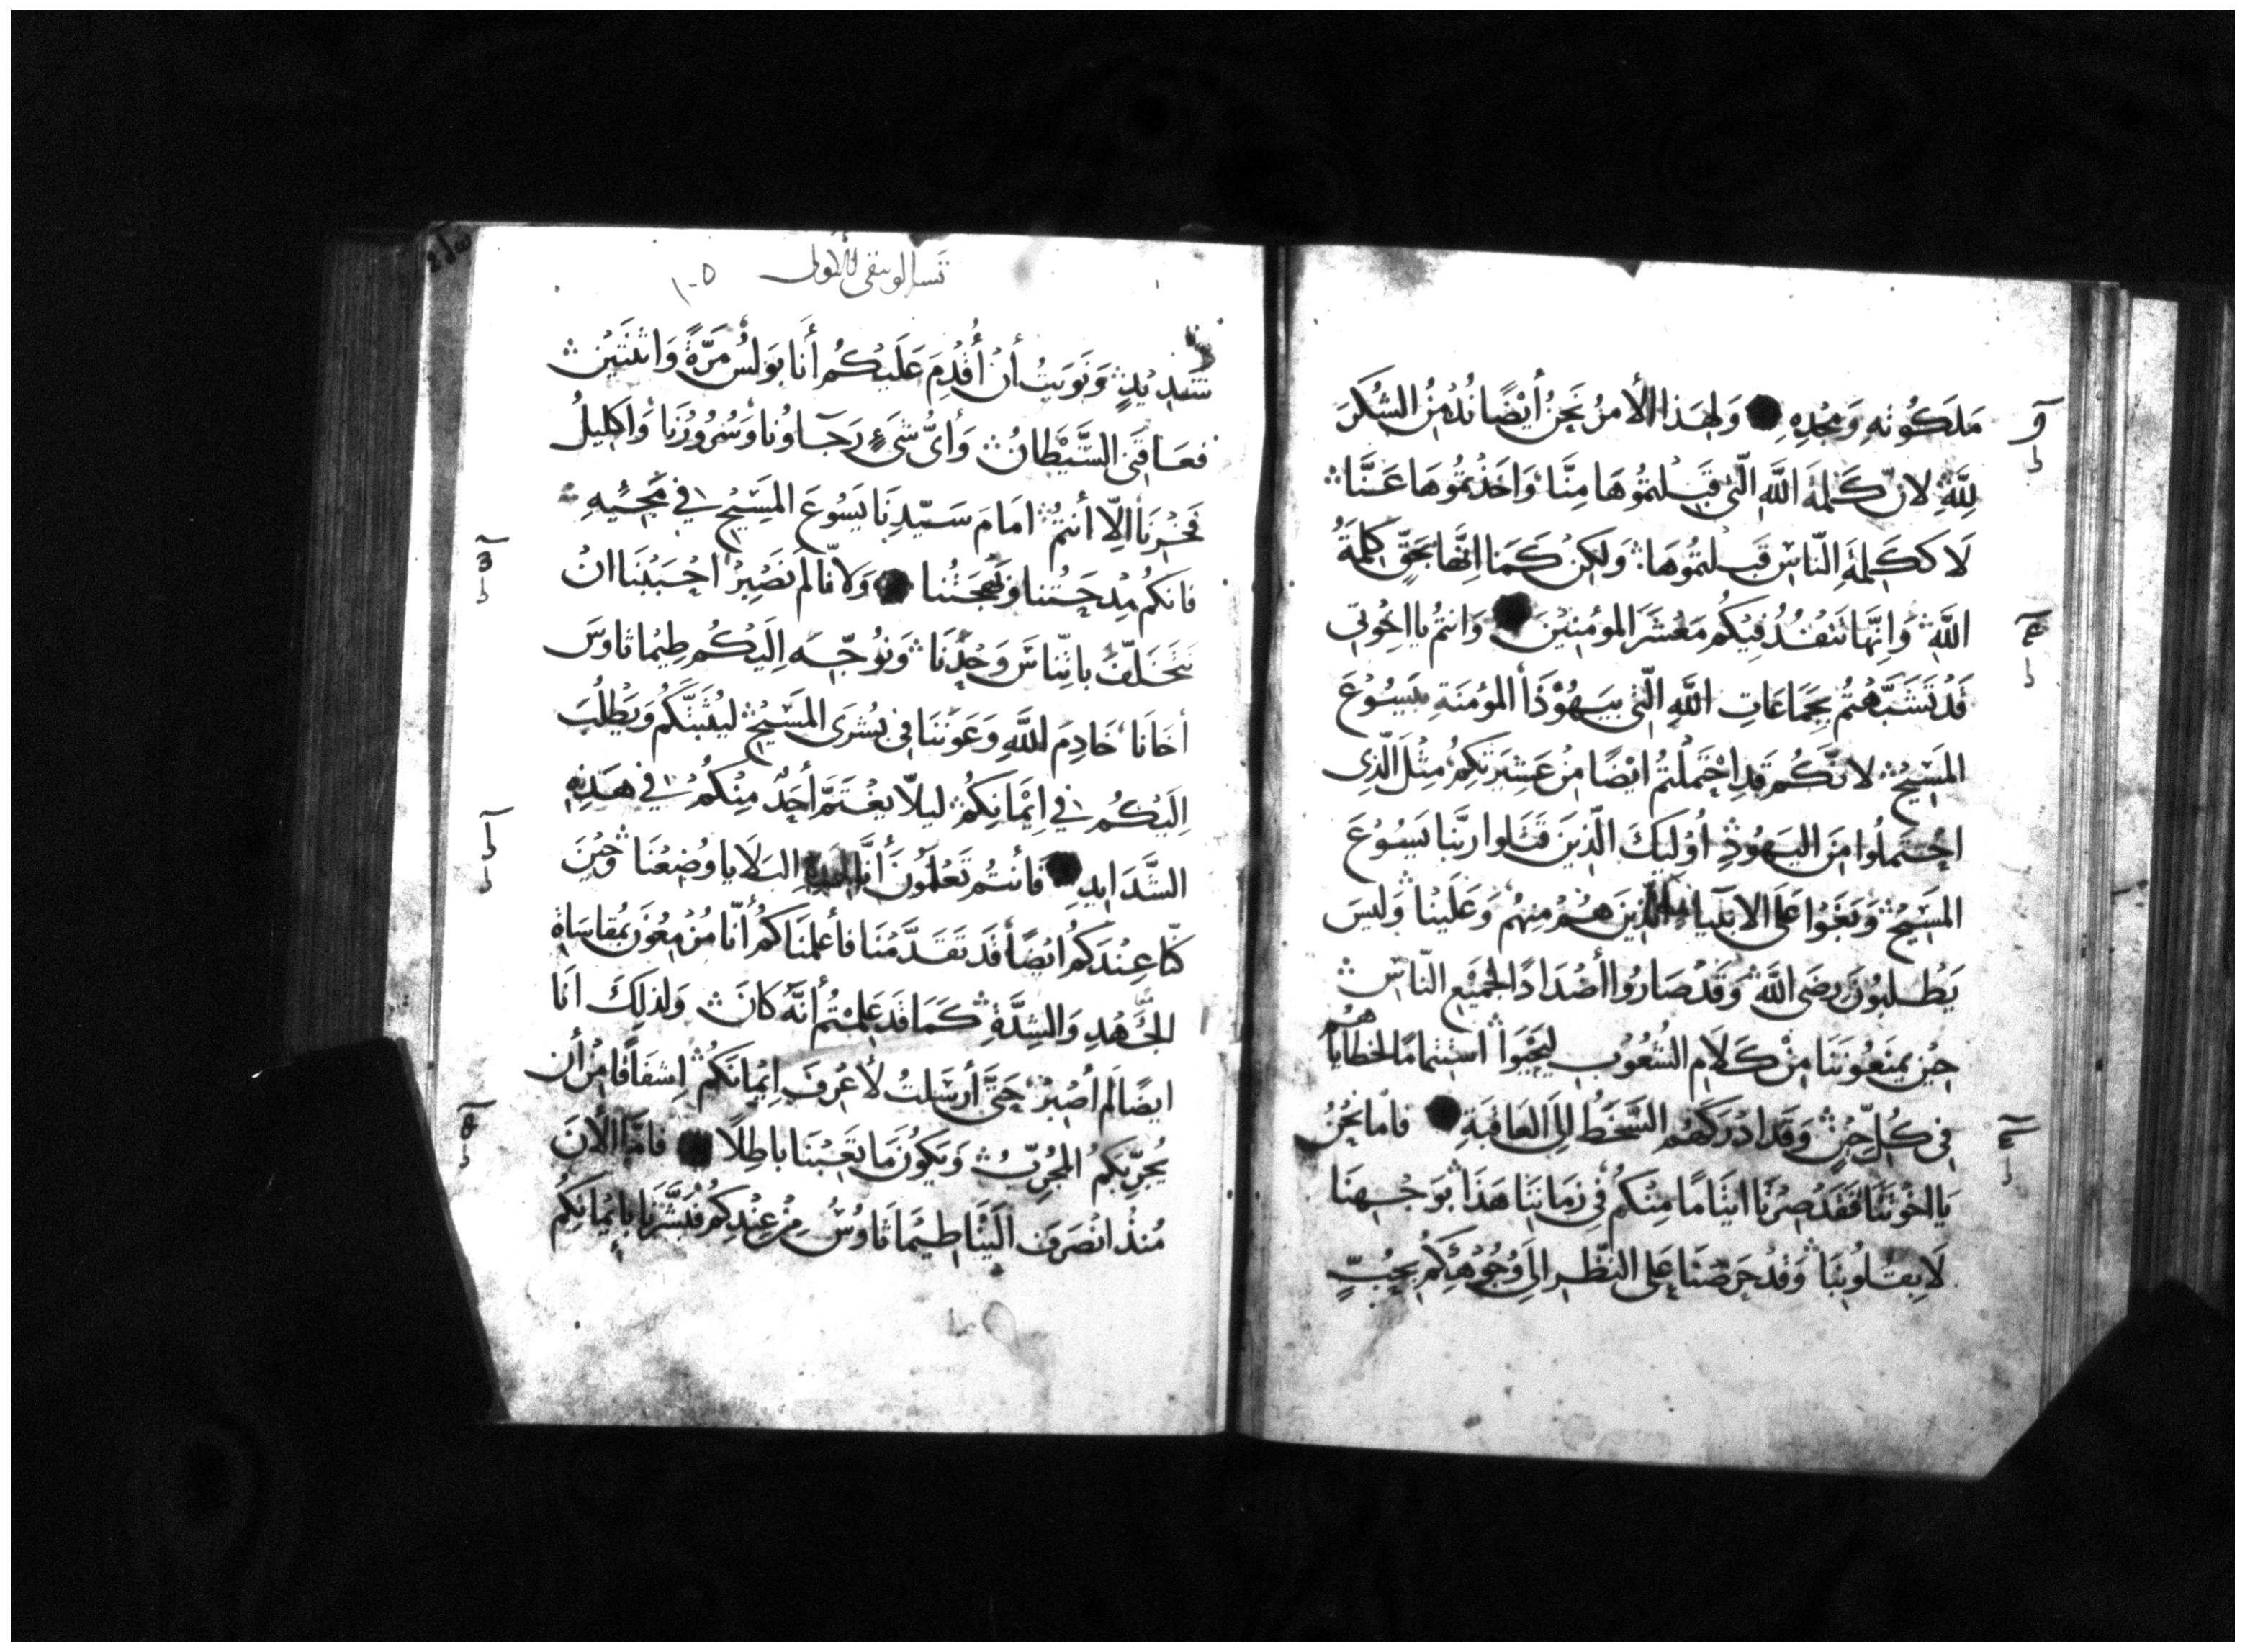 مَلَكُوتهِ وَمَجْدِهِ وَلِهَذا الأمرُ نَحنُ أيْضًا نُدْمِنُ الشكرَ
لِلَّهِ لانّ كَلمةَ اللَّهِ الّتي قَبِلتمُوُهَا مِنَّا وَاَخَذْتمُوُهَا عَنَّا
لَا كَكَلمةِ النّاسِ قَبِلتمُوُهَا وَلكِنْ كَمَا اِنّهَا بحَقّ كلمَةُ
اللَّهِ وَاِنَّهَا تنفُذُ فِيْكُم مَعْشَرَ المؤمنِيْنَ وَانتمُ يا اِخْوَتي
قَدْ تَشَبَّهْتُم بِجَمَاعَاتِ اللَّهِ الّتي بيَهُوْذَا المؤمنَةِ بيَسُوْعَ
المَسِيْحِ لانّكُم قدِ احْتَملْتُم ايْضًا مِنْ عَشِيْرَتكِمُ مِثلَ الّذِى
احْتَملُوا مِنَ اليَهُوْدِ اُوْليكَ الّذِينَ قتَلوا ربَّنا يَسُوْعَ
المَسِيْحَ وَبَغَوْا عَلَى الانبيَاءِ الّذِينَ هُم مِنهُم وَعَلَينا وَليسَ
يَطلبُونَ رِضَى اللَّهِ وَقَدْ صَارُوا أضْدَادًا لجمَيْعِ النّاسِ
حِيْنَ يمنَعُونَنَا مِنْ كَلَامِ الشُعُوْبِ ليَحْيَوْا اسْتتمامًا لخطاياهُم
في كُلّ حِيْنٍ وَقَد ادْرَكَهُم السَّخَطُ اِلَى العَاقبَةِ فامّا نَحْنُ
يَا اخْوَتَنَا فَقَدْ صِرْنَا ايتَامًا مِنْكمُ في زَمَانِنَا هَذَا بوُجْوْهِنَا
لَا بِقُلوُبِنَا وَقدْ حَرَصْنَا عَلى النّظَرِ الَى وُجُوْهِكُم بحُبٍّ
تسالونيقى الاولى
١٠٥
شَدِيْدٍ وَنَوَيتُ أنْ أُقْدِمَ عَليْكُم أنَا بَولُسُ مَرَّةً وَاثنتَيْنِ
فعَاقَنِى الشَّيْطانُ وَأىُّ شَىءٍ رَجَاوُنا وَسُرُوْرُنَا وَاكليْلُ
فَخْرِنَا اِلّا أنتُم امَامَ سَيّدِنَا يَسُوْعَ المَسِيْحِ في مَجِيْئهِ
فانكُم مِدْحَتُنا وَبَهجَتُنا وَلانّا لَم نَصْبِرْ احْبَبْنَا انْ
نَتَخَلّفَ باتِنّاسَ وَحْدَنَا وَنوُجّهَ اِلَيْكُم طِيْمَاثاوسَ
أخَانَا خَادِمَ اللَّهِ وَعَوْنَنَا في بُشرَى المَسِيْحِ ليُثبّتكُم وَيَطْلُبَ
اِلَيْكُم في اِيْمَانِكُم ليلّا يَغْتَمَّ أحَدٌ مِنْكُم في هَذِهِ
الشَّدَايدِ فَأنتُم تَعْلمُونَ أنَّا لهَذِهِ البَلَايا وُضِعْنَا وَحِيْنَ
كُنّا عِنْدَكُم ايْضًا قَد تقَدَّمْنَا فأعلَمنَاكُم أنّا مُزْمِعُونَ بمُقاسَاةِ
الجَهْدِ وَالشِدَّةِ كَمَا قَد عَلِمْتُم أنَّهُ كانَ وَلذلِكَ انَا
ايضًا لَم أصْبِرْ حَتَّى أرْسَلتُ لأعْرِفَ اِيْمانَكُم اِشفَاقًا مِنْ أن
يُجَرِّبَكُم المجَرّبُ وَيَكُونَ مَا تَعِبْنَا باطِلًا فامَّا الأنَ
مُنذُ انْصَرَفَ الَيْنَا طيْمَاثَاوُسُ مِنْ عِنْدِكُم فَبَشَّرَنا بايْمَانِكُم